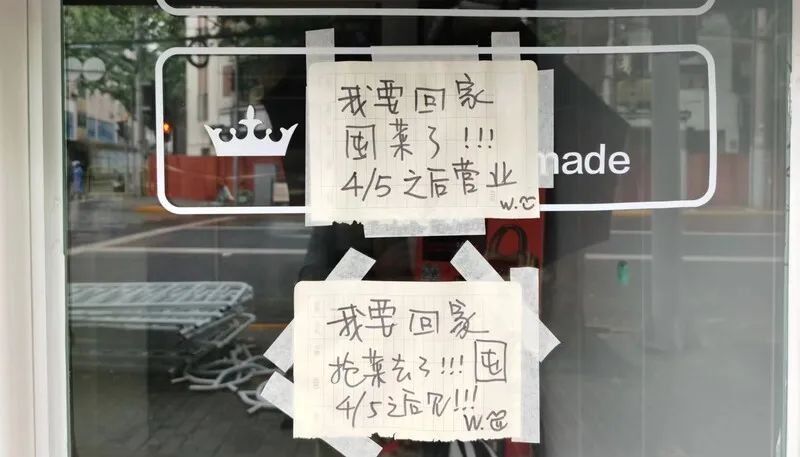 我要回家
囤菜了!!!
made
4/5之后营业
W.
我要回家
抢菜去了!!! 囤
4/5之后见!!!
W.